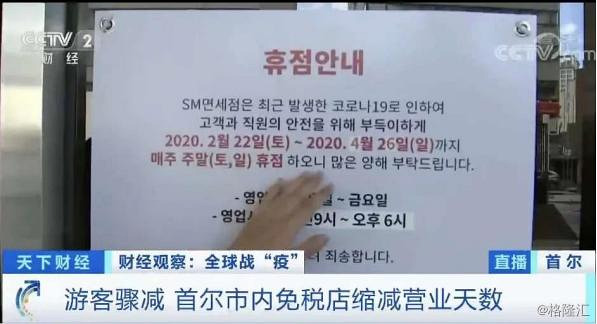 CCTV 2
财经
CCTV
휴점안내
SM면세점은 최근 발생한 코로나19로 인하여
고객과 직원의 안전을 위해 부득이하게
2020. 2월 22일(토) ~ 2020. 4월 26일(일)까지
매주 주말(토,일) 휴점 하오니 많은 양해 부탁드립니다.
- 영업 ~ 금요일
- 영업 9시 ~ 오후 6시
죄송합니다.
天下财经 财经观察：全球战“疫” 直播 首尔
游客骤减 首尔市内免税店缩减营业天数
@格隆汇